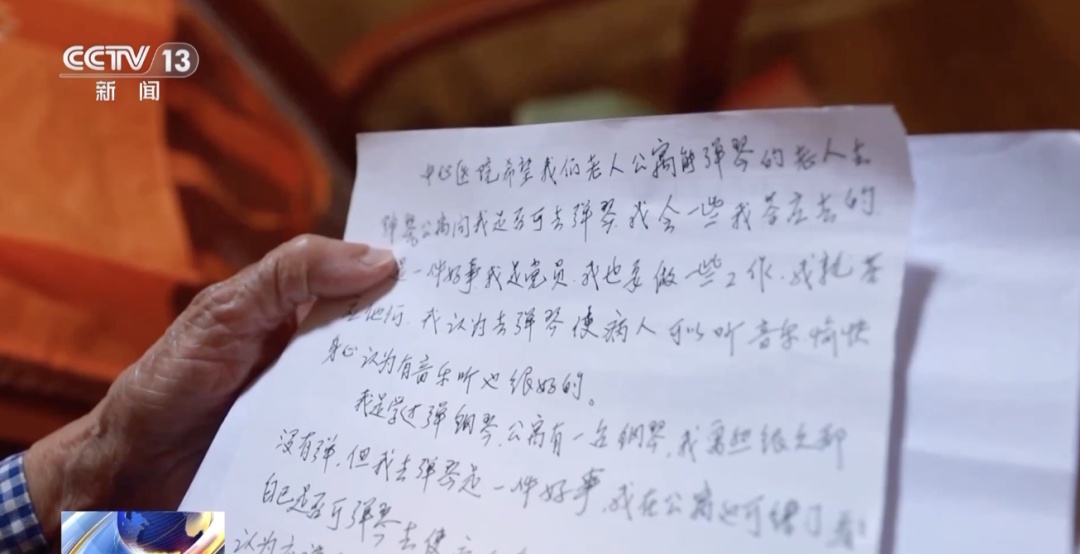 CCTV 13
新闻
中心医院希望我们老人公寓能弹琴的老人去
弹琴公寓问我是否可去弹琴,我会一些我答应去的
是一件好事我是党员,我也要做一些工作,我就答
应他们,我认为去弹琴使病人可以听音乐愉快
身心认为有音乐听也很好的。
我是学过弹钢琴,公寓有一台钢琴,我离也很久都
没有弹,但我去弹琴是一件好事,我在公寓也可练了看
自己是否可弹琴去使
认为